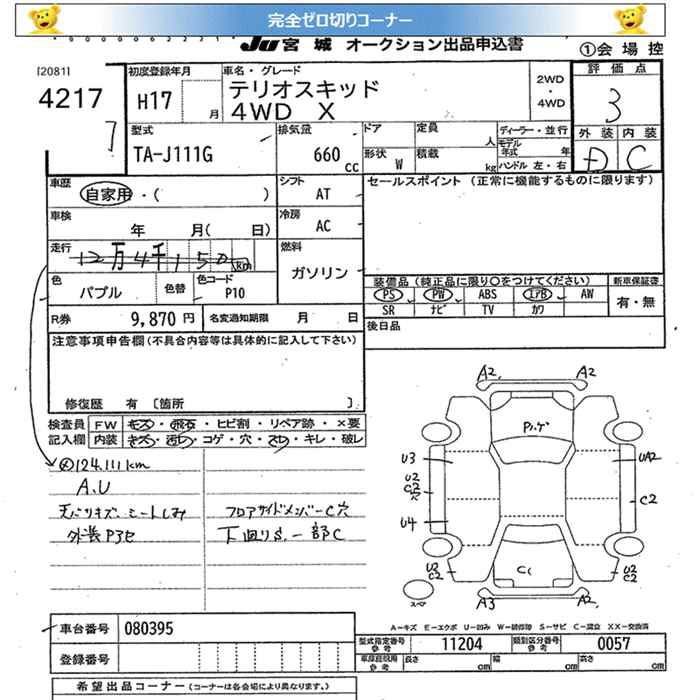 完全ゼロ切りコーナー
JU宮城 オークション出品申込書
①会場控
[2081]
4217
7
初度登録年月
H17 月
車名・グレード
テリオスキッド
4WD X
2WD
・
4WD
評価点
3
外装 内装
D C
型式
TA-J111G
排気量
660 cc
ドア
定員 人
形状 W
積載 kg
ディーラー・並行
モデル年式 年
ハンドル 左・右
車歴
自家用・( )
シフト
AT
セールスポイント (正常に機能するものに限ります)
車検
年 月( 日)
冷房
AC
走行
12万4千150km
燃料
ガソリン
色
パプル
色替
色コード
P10
装備品 (純正品に限り○をつけてください)
新車保証書
PS PW ABS エアB AW
有・無
SR ナビ TV カワ
R券 9,870円
名変通知期限 月 日
後日品
注意事項申告欄 (不具合内容等は具体的に記入して下さい)
修復歴 有 [箇所 ]
検査員記入欄
FW キズ・飛石・ヒビ割・リペア跡・×要
内装 キズ・汚レ・コゲ・穴・スレ・キレ・破レ
124,111km
A.U
天バリキズ シートしみ
外装P3セ
フロアサイドメンバーC穴
下回りS.一部C
A2 A2
U3
UA2
U2
C2
穴
C2
U4
U2
C2
U2
C2
C1
スペア
A3 A2
A-キズ E-エクボ U-凹み W-補修跡 S-サビ C-腐食 XX-交換済
車台番号 080395
登録番号
型式指定番号 参考 11204
類別区分番号 参考 0057
車庫証明用 参考 長さ cm 幅 cm 高さ cm
希望出品コーナー (コーナーは各会場により異なります。)